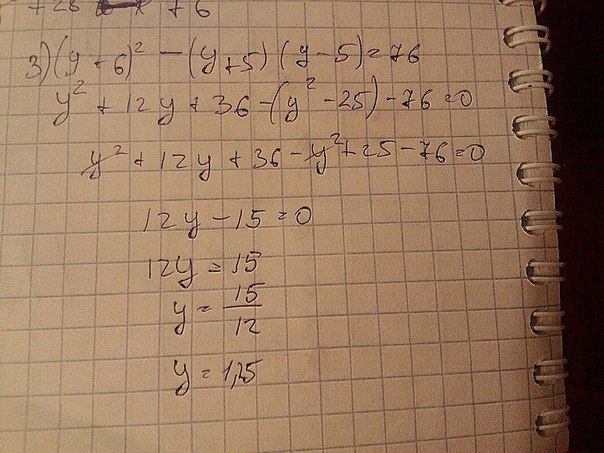 +28 76
3) (y+6)² - (y+5)(y-5)=76
y² + 12y + 36 - (y² - 25) - 76 = 0
y² + 12y + 36 - y² + 25 - 76 = 0
12y - 15 = 0
12y = 15
y = 15/12
y = 1,25